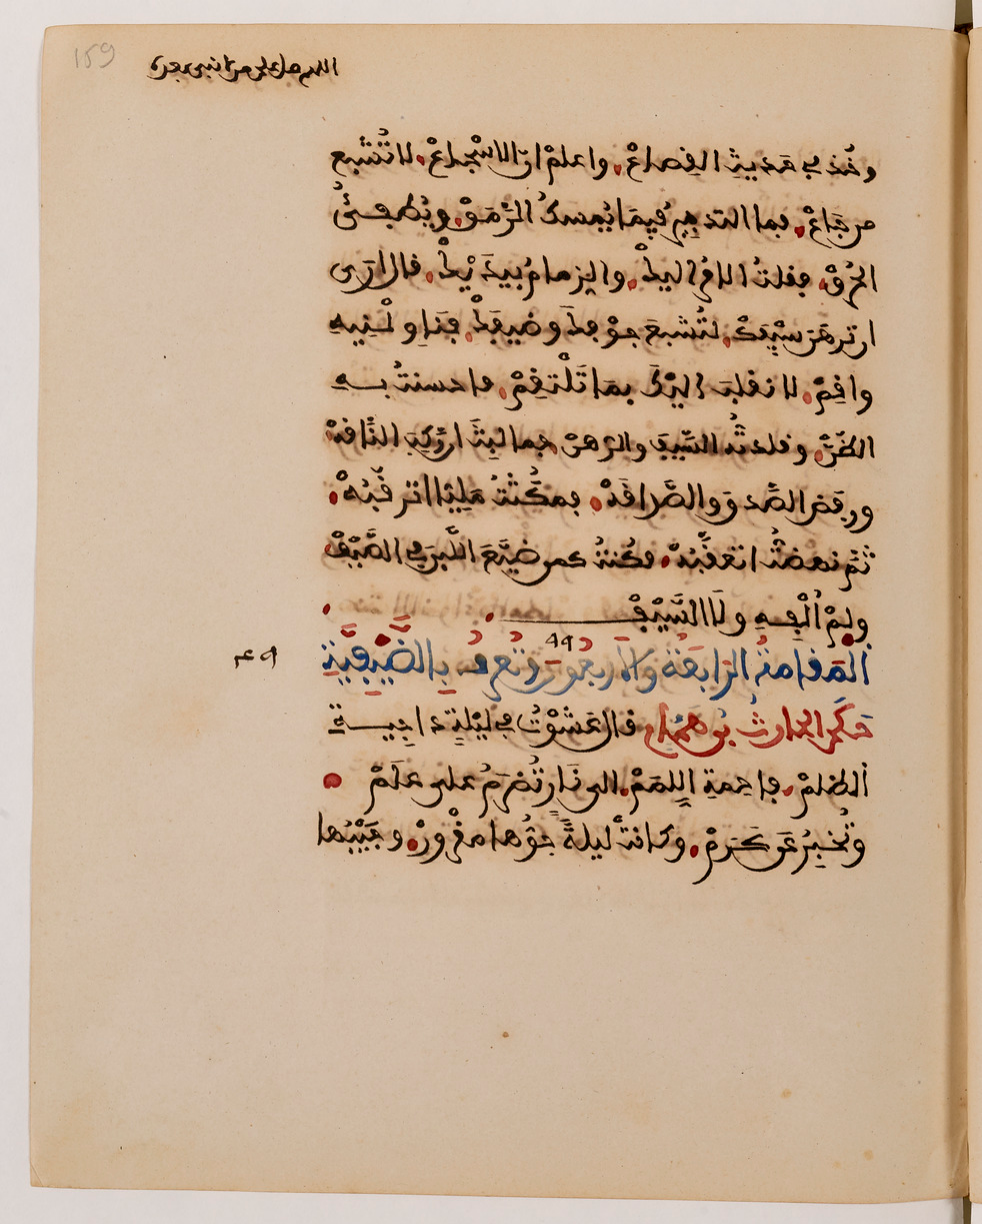 159
اللهم صل على من لا نبي بعده
وخُذ في حَديثِ القِصاعْ، واعلمْ انّ الاسْجاعْ، لا تُشْبِع
من جَاعْ، فما التدبِيرُ فِيمَا يُمسكُ الرَّمَقْ، ويُطفِئُ
الحُرَقْ، فقلتُ الامْرُ اليكْ، والزمامُ بيدَيْكْ، فقال ارَى
ان ترهَن سيْفَكْ، لتُشبعَ جوْفكَ وضيفَكْ، فنَاوِلْنِيهِ
واقِمْ، لا نقلبَ اليْكَ بمَا تَلْتقِمْ، فاحسنتُ بهِ
الظنّْ، وقلدتُه السّيفَ والرّهنْ، فما لبِثَ ان ركِبَ النَّاقهْ
ورفَض الصِّدق والصَّداقَهْ، فمكُثتُ مَلِيّا اترقّبُهْ،
ثمّ نهضتُ اتعقّبُهْ، فكُنتُ كمن ضيَّعَ اللّبنَ في الصَّيْفْ
ولمْ اُلْقِهِ ولا السَّيْفْ
المَقامةُ الرّابعَةُ والاَربعُون وتُعرفُ بِالصَّيفيّةِ
44
٤٩
حَكَى الحارثُ بن همّام قال عَشَوْتُ في ليْلةٍ داجِيةِ
الظلمْ، فاحِمةِ اللِمَمْ، الى نَارٍ تُضرَمُ على علَمْ
وتُخبِرُ عَن كَرَمْ، وكانتْ ليلةً جوُّها مقْرورْ، وجَيْبُها